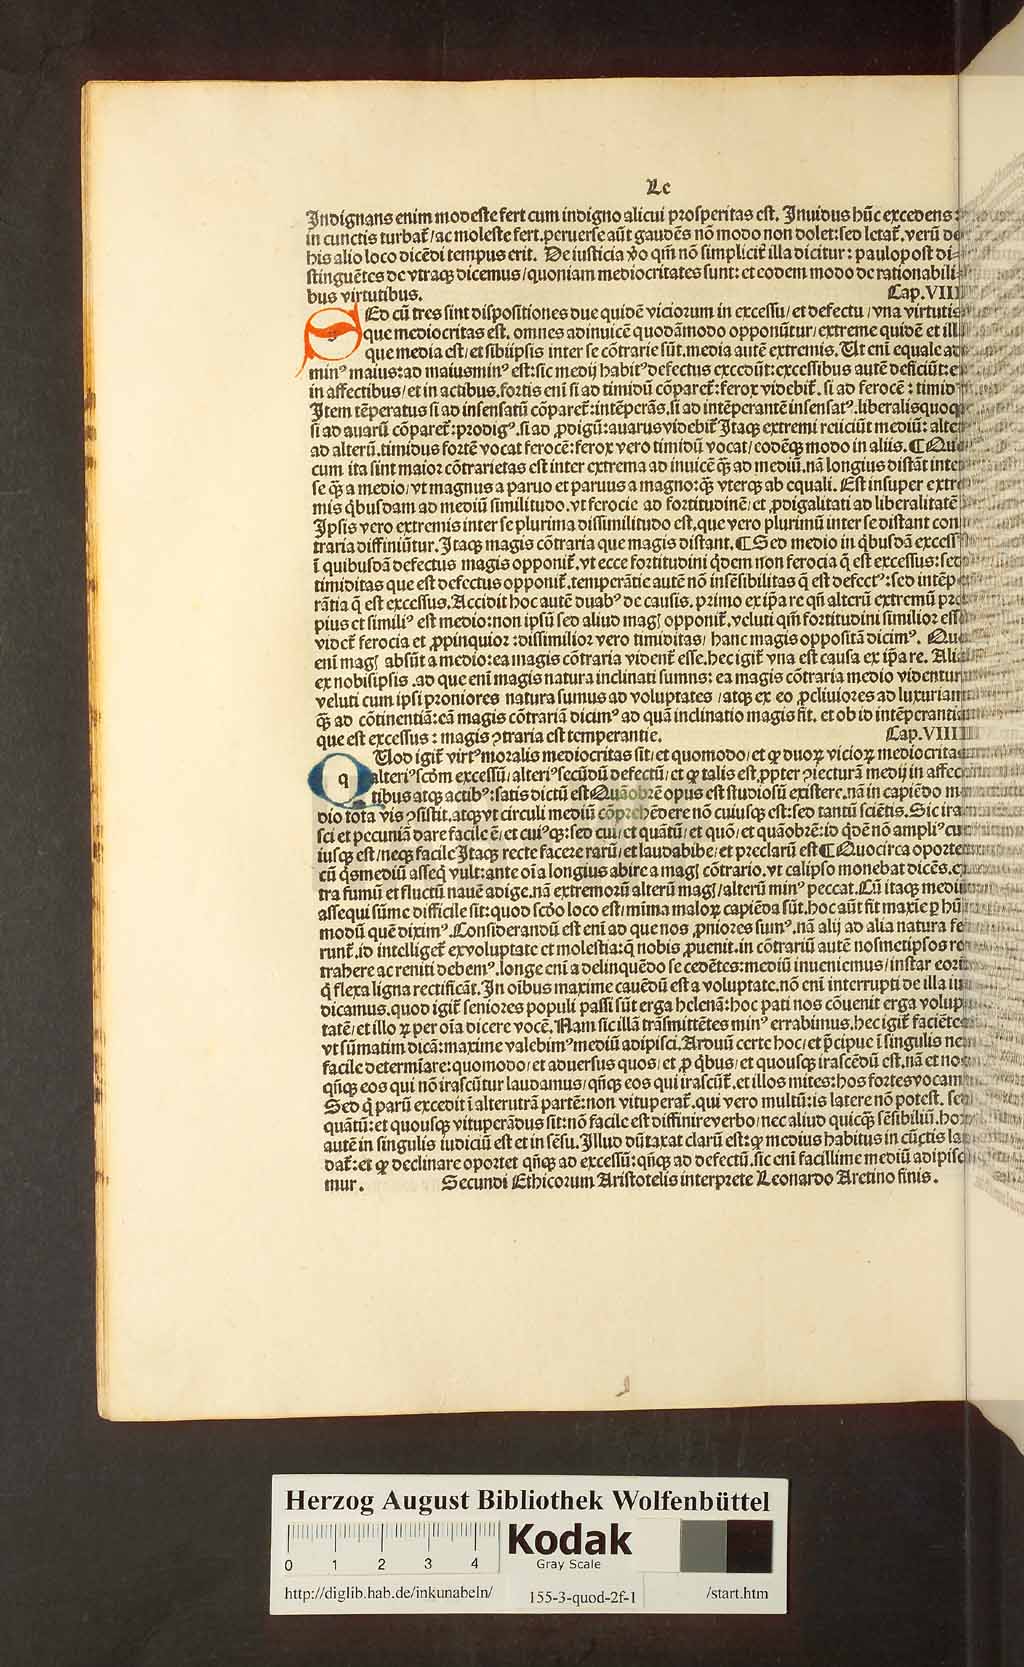 Le
Indignans enim modeste fert cum indigno alicui prosperitas est. Inuidus hūc excedens:
in cunctis turbat᷑/ac moleste fert.peruerse aūt gaudēs nō modo non dolet:sed letat᷑.verū de
his alio loco dicēdi tempus erit. De iusticia ꝟo qm̄ nō simplicit᷑ illa dicitur: paulopost di-
stinguētes de vtraqꝫ dicemus/quoniam mediocritates sunt: et eodem modo de rationabili-
bus virtutibus. Cap.VIII
SEd cū tres sint dispositiones due quidē viciorum in excessu/et defectu/vna virtutis
que mediocritas est. omnes adinuicē quodāmodo opponūtur/extreme quidē et ill
que media est/et sibiipsis inter se cōtrarie sūt.media autē extremis. Ut eni equale ad
minꝰ maius:ad maiusminꝰ est:sic medij habitꝰdefectus excedūt:excessibus autē deficiūt:e
in affectibus/et in actibus.fortis eni si ad timidū cōparet᷑:ferox videbit᷑. si ad ferocē: timid
Item tēperatus si ad insensatū cōparet᷑:intēperās.si ad intēperantē insensatꝰ.liberalisquoqꝫ
si ad auarū cōparet᷑:prodigꝰ.si ad ꝓdigū:auarus videbit᷑ Itaqꝫ extremi reiiciūt mediū: alte
ad alterū.timidus fortē vocat ferocē:ferox vero timidū vocat/eodēqꝫ modo in aliis.¶Que
cum ita sint maior cōtrarietas est inter extrema ad inuicē qꝫ̄ ad mediū.nā longius distāt inte
se qꝫ̄ a medio/vt magnus a paruo et paruus a magno:qꝫ̄ vterqꝫ ab equali. Est insuper extre
mis qͥbusdam ad mediū similitudo.vt ferocie ad fortitudinē/et ꝓdigalitati ad liberalitatē
Ipsis vero extremis inter se plurima dissimilitudo est.que vero plurimū inter se distant con
traria diffiniūtur.Itaqꝫ magis cōtraria que magis distant.¶Sed medio in qͥbusdā excess
ī quibusdā defectus magis opponit᷑.vt ecce fortitudini qͥdem non ferocia q̄ est excessus:sed
timiditas que est defectus opponit᷑.temperātie autē nō insēsibilitas q̄ est defectꝰ:sed intēp
rātia q̄ est excessus.Accidit hoc autē duabꝰ de causis. primo ex ip̄a re qn̄ alterū extremū pro
pius et similiꝰ est medio:non ipsū sed aliud magꝭ opponit᷑.veluti qm̄ fortitudini similior esse
videt᷑ ferocia et ꝓpinquior:dissimilior vero timiditas/hanc magis oppositā dicimꝰ. Que
eni magꝭ absūt a medio:ea magis cōtraria vident᷑ esse.hec igit᷑ vna est causa ex ip̄a re. Alia
ex nobisipsis.ad que eni magis natura inclinati sumus: ea magis cōtraria medio videntur
veluti cum ipsi proniores natura sumus ad voluptates/atqꝫ ex eo ꝓcliuiores ad luxuriam
qꝫ̄ ad cōtinentiā:eā magis cōtrariā dicimꝰ ad quā inclinatio magis fit. et ob id intēperantia
que est excessus: magis ꝯtraria est temperantie. Cap.VIIII
QUod igit᷑ virtꝰmoralis mediocritas sit/et quomodo/et qꝫ duoꝝ vicioꝝ mediocritas
alteriꝰscd̄m excessū/alteriꝰsecūdū defectū/et qꝫ talis est.ꝓpter ꝯiecturā medij in affec
tibus atqꝫ actibꝰ:satis dictū est Quāobrē opus est studiosū existere.nā in capiēdo m
dio tota vis ꝯsistit.atqꝫ vt circuli mediū cōprehēdere nō cuiusqꝫ est:sed tantū sciētis.Sic ira
sci et pecuniā dare facile ē/et cuiꝰqꝫ:sed cui/et quātū/et quō/et quāobrē:id qͥdē nō ampliꝰ cu
iusqꝫ est/neqꝫ facile Itaqꝫ recte facere rarū/et laudabibe/et preclarū est ¶Quocirca oporte
cū qͥsmediū asseqͥ vult:ante oīa longius abire a magꝭ cōtrario.vt calipso monebat dicēs.
tra fumū et fluctū nauē adige.nā extremorū alterū magꝭ/alterū minꝰ peccat.Cū itaqꝫ mediū
assequi sūme difficile sit:quod scd̄o loco est/minima maloꝝ capiēda sūt.hoc aūt fit maxīe ꝑ hū
modū quē diximꝰ.Considerandū est eni ad que nos ꝓniores sumꝰ.nā alij ad alia natura fe
runt᷑.id intelliget᷑ exvoluptate et molestia:q̄ nobis ꝓuenit.in cōtrariū autē nosmetipsos re
trahere ac reniti debemꝰ.longe eni a delinquēdo se cedētes:mediū inueniemus/instar eorū
qͥ flexa ligna rectificāt.In oībus maxime cauēdū est a voluptate.nō eni interrupti de illa iu
dicamus.quod igit᷑ seniores populi passi sūt erga helenā:hoc pati nos cōuenit erga volup
tatē/et illoꝝ per oīa dicere vocē.Nam sic illā trāsmittētes minꝰ errabimus.hec igit᷑ faciētes
vt sūmatim dicā:maxime valebimꝰmediū adipisci.Arduū certe hoc/et p̄cipue ī singulis ne
facile determiare:quomodo/et aduersus quos/et ꝓ qͥbus/et quousqꝫ irascēdū est.nā et nos
qn̄qꝫ eos qui nō irascūtur laudamus/qn̄qꝫ eos qui irascūt᷑.et illos mites:hos fortesvocam
Sed qͥ parū excedit ī alterutrā partē:non vituperat᷑.qui vero multū:is latere nō potest. sed
quātū:et quousqꝫ vituperādus sit:nō facile est diffinireverbo/nec aliud quicqꝫ̄ sēsibiliū.ho
autē in singulis iudiciū est et in sēsu.Illud dūtaxat clarū est:qꝫ medius habitus in cūctis lau
dat᷑:et qꝫ declinare oportet qn̄qꝫ ad excessū:qn̄qꝫ ad defectū.sic eni facillime mediū adipisc
mur. Secundi Ethicorum Aristotelis interprete Leonardo Aretino finis.
Herzog August Bibliothek Wolfenbüttel
0 1 2 3 4
Kodak
Gray Scale
http://diglib.hab.de/inkunabeln/ 155-3-quod-2f-1 /start.htm